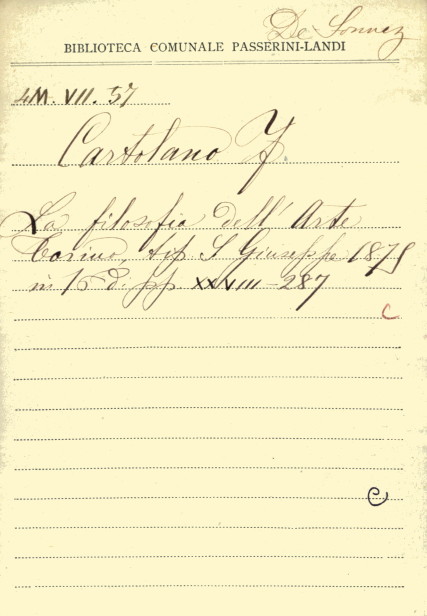 De
BIBLIOTECA COMUNALE PASSERINI-LANDI
4M. VII. 57
Cartolano F.
La filosofia dell' Arte
Torino, tip. S Giuseppe 1875
in 16 d. pp. XXVIII-287
C
C